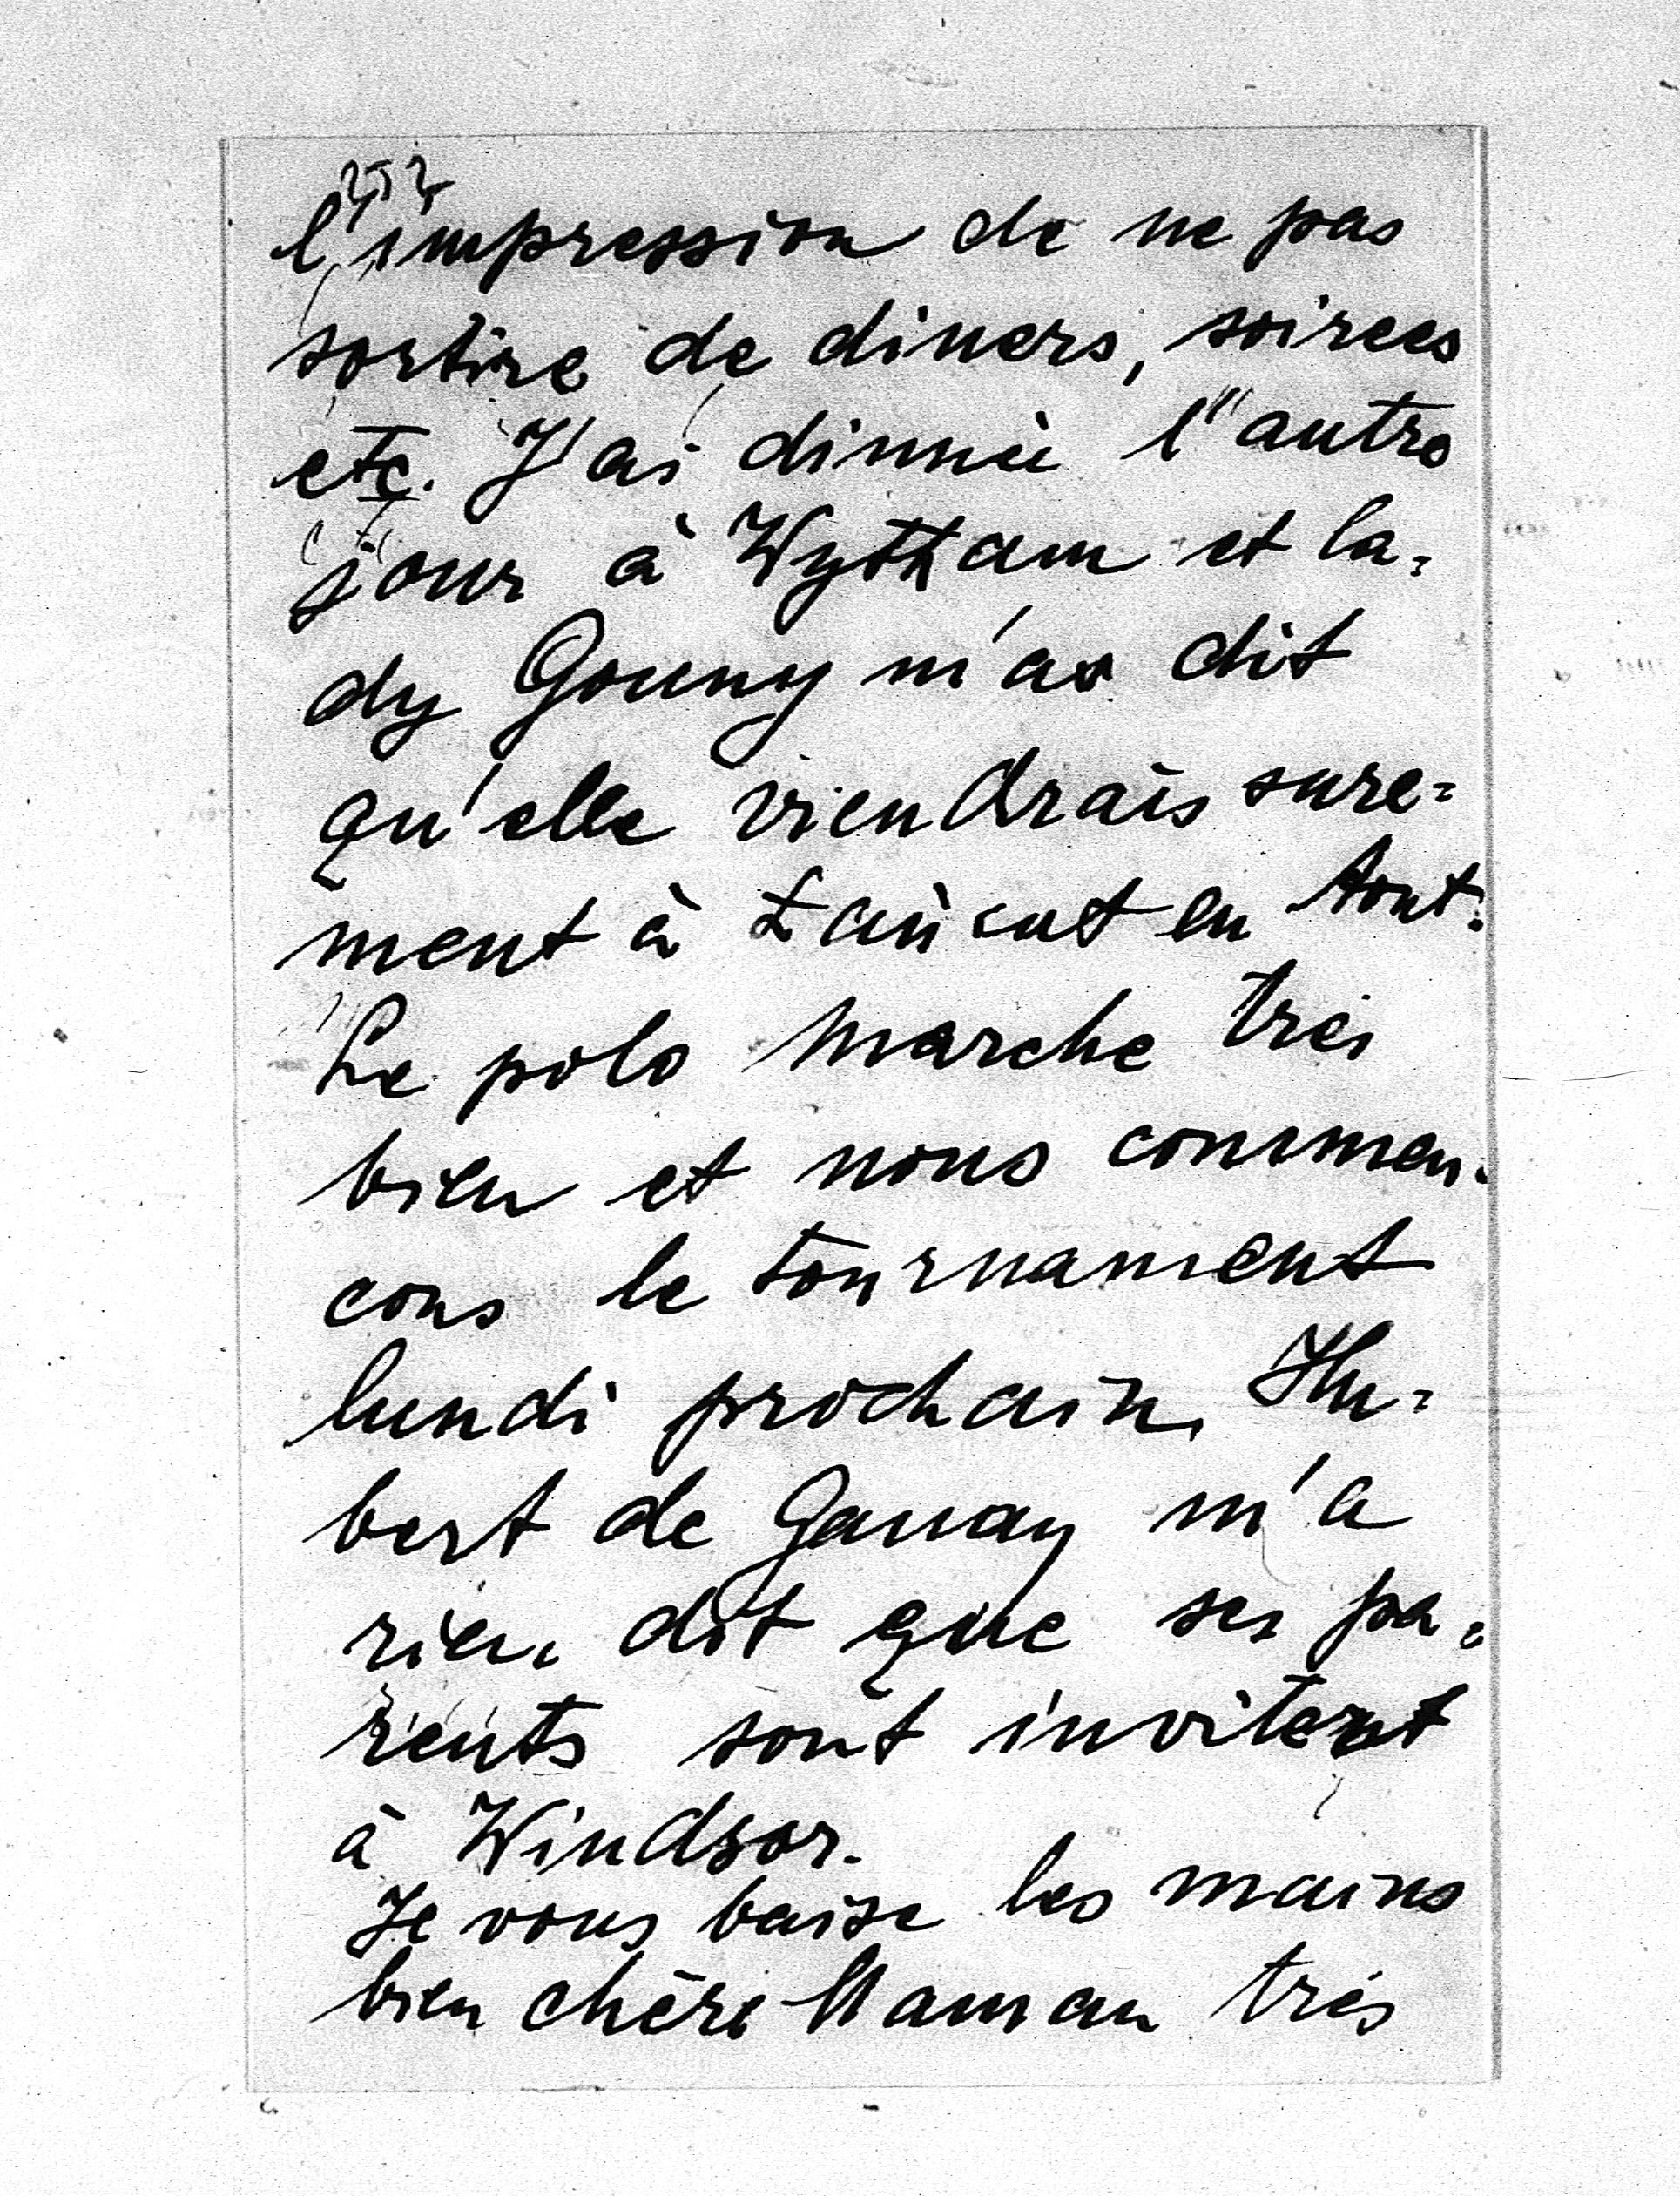 l'impression de ne pas
sortire de diners, soirees
etc. J'ai dinnèe l'autre
jour à Wytham et la=
dy Gouny m'as dit
qu'elle viendrais sure=
ment à Łańcut en Aout.
Le polo marche très
bien et nous commen-
cons le tournament
lundi prochain, Hu=
bert de Ganay m'a
rien dit que ses pa=
rents sont invitent
à Windsor.
Je vous baise les mains
bien chère Maman très